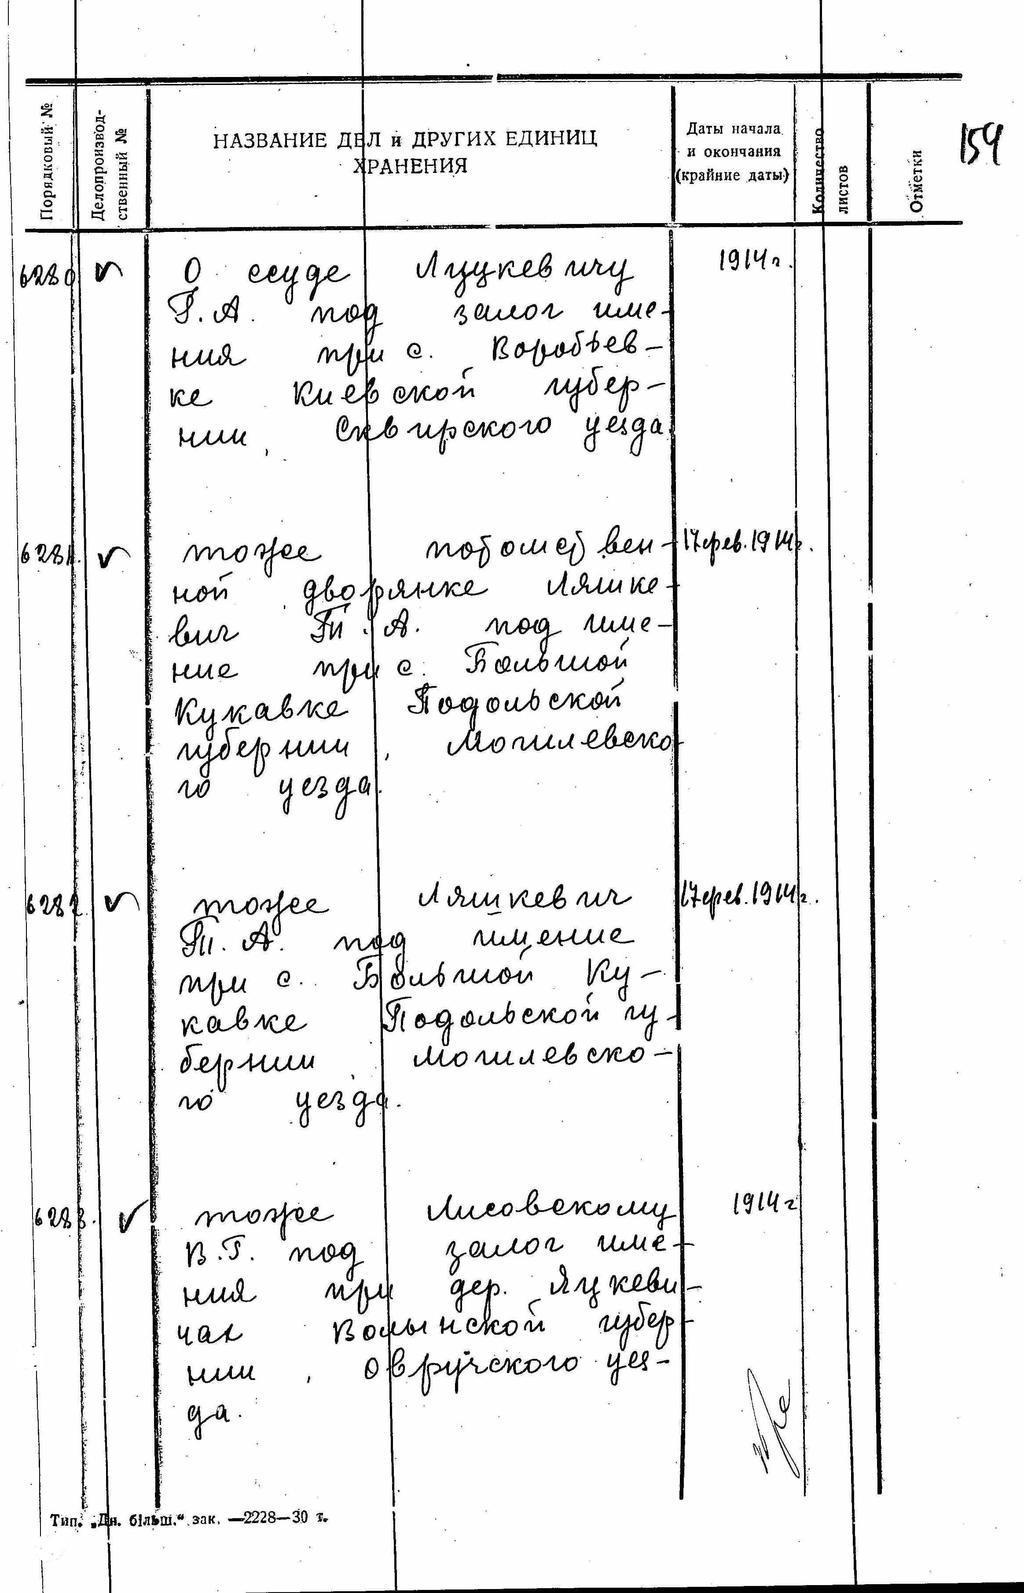 159
Порядковый №
Делопроизвод-
ственный №
НАЗВАНИЕ ДЕЛ и ДРУГИХ ЕДИНИЦ
ХРАНЕНИЯ
Даты начала
и окончания
(крайние даты)
Количество
листов
Отметки
6280 О ссуде Луцкевичу 1914 г.
Г. А. под залог име-
ния при с. Воробьев-
ке Киевской губер-
нии, Сквирского уезда
6281. тоже потомствен- 17 фев. 1914 г.
ной дворянке Ляшке-
вич Т. А. под име-
ние при с. Большой
Кукавке Подольской
губернии, Могилевско
го уезда.
6282. тоже Ляшкевич 17 фев. 1914 г.
Т. А. под имение
при с. Большой Ку-
кавке Подольской гу-
бернии, Могилевско-
го уезда.
6283. тоже Лисовскому 1914 г
В. Г. под залог име-
ния при дер. Яцкеви-
чах Волынской губер-
нии, Овручского уез-
да.
Тип. „Дн. більш." зак. —2228—30 т.